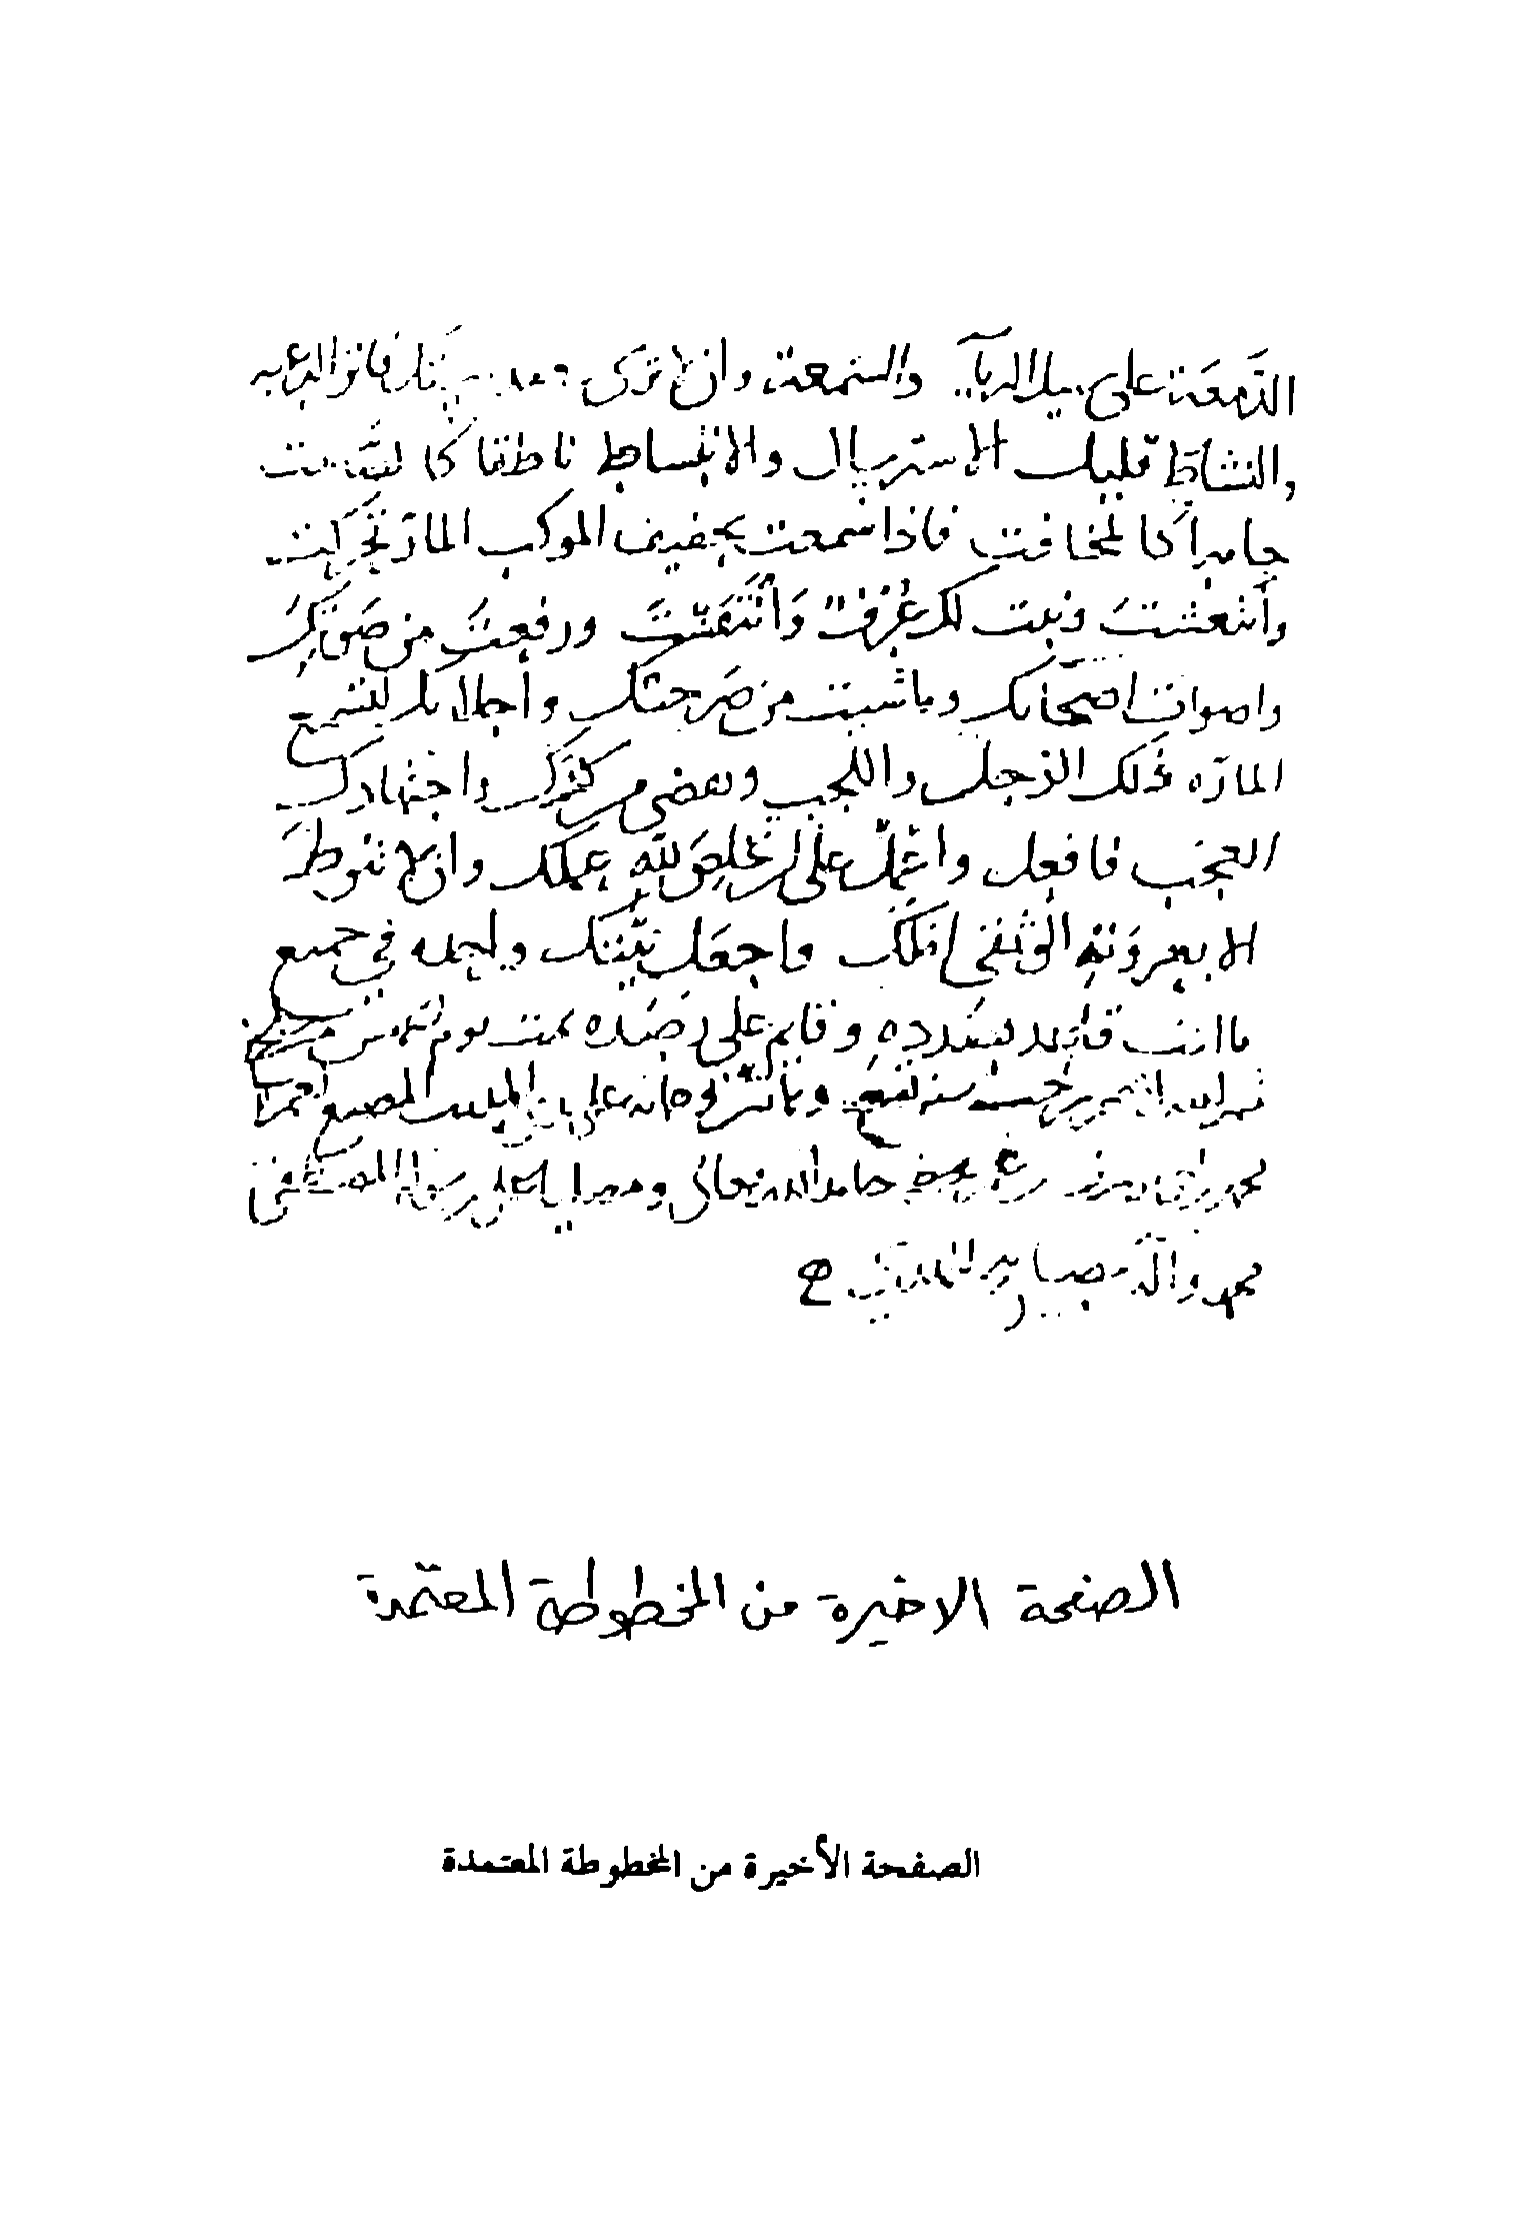 الدمعة على سبيل الريآء والسمعة وان لا ترى
والنشاط قليل الاسترسال والانبساط ناطقا كالمتصامت
جاهراً كالمخافت فاذا سمعت بحفيف الموكب المارّ تحركت
وأنتعشت ونبت لك عُرْفٌ وَانْتَفَشْتَ ورفعتَ من صَوْتكَ
واصوات اصحابك وما شيت من صَرختك وأجلابك ليسمع
المارّه ذلك الزجل واللجب ويقضي من كثرتك واجتهادك
العجب فافعل واعمل على ان تخلصَ للهِ عملك وان لا تنوطَ
الا بعروته الوثقى املك واجعل نيّتك وليجه في جميع
ما انت قاصد لسَددهِ وقايم على رَصَده تمت يوم الخميس من
شهر الله رجب سنه تسع على بن
محمد حامدا لله تعالى ومصليا على رسوله المصطفى
محمد وآله
الصفحة الاخيرة من المخطوطة المعتمدة
الصفحة الأخيرة من المخطوطة المعتمدة